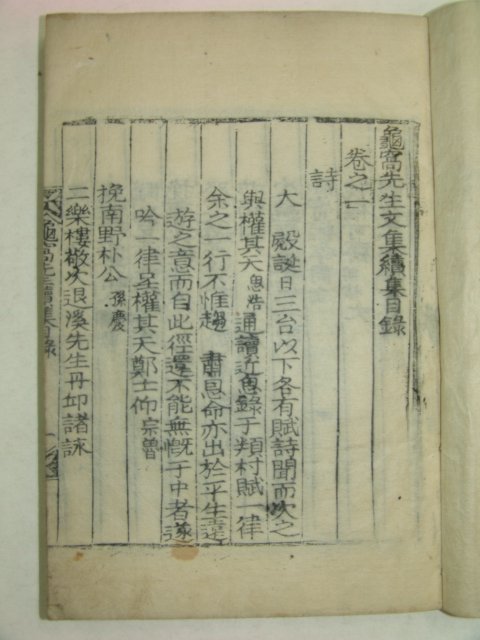 龜窩先生文集續集目錄
卷之一
詩
大 殿誕日三台以下各有賦詩聞而次之
與權其天思浩通讀近思錄于類村賦一律
余之一行不惟趨 肅恩命亦出於平生遠
遊之意而自此徑還不能無慨于中者遂
吟一律呈權其天鄭士仰宗魯
挽南野朴公孫慶
二樂樓敬次退溪先生丹邱諸詠
龜窩先生續集目錄